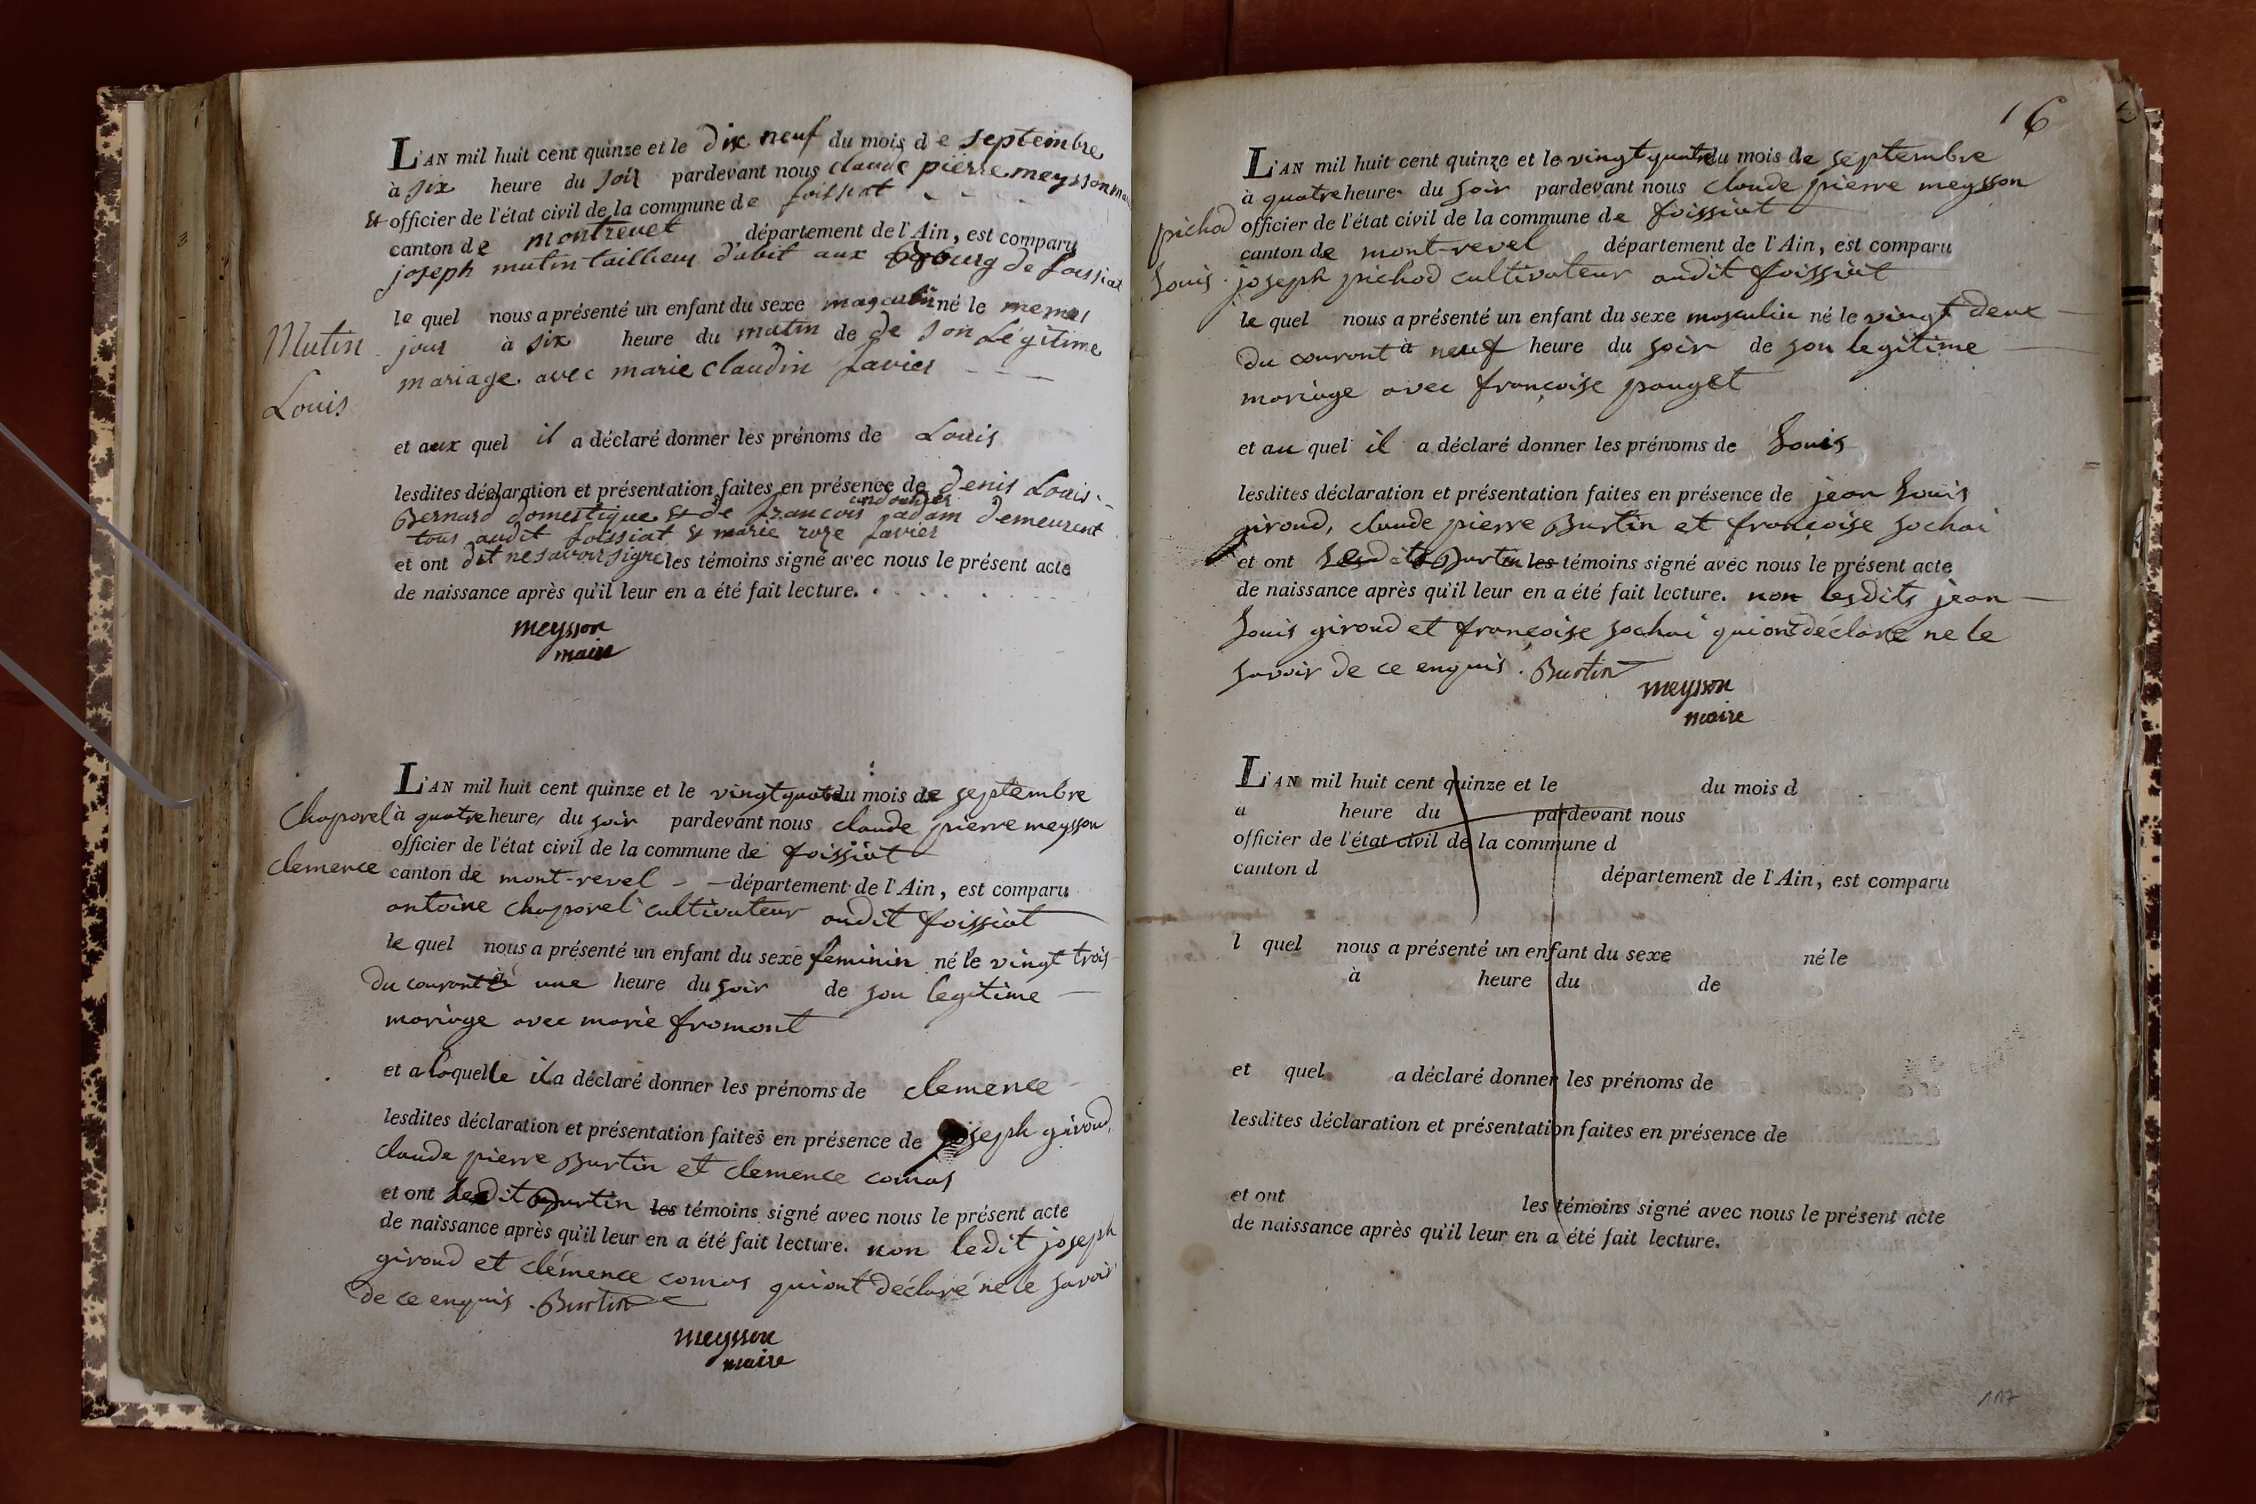 L'AN mil huit cent quinze et le dix neuf du mois de septembre
à six heure du soir pardevant nous claude pierre meysson maire
et officier de l'état civil de la commune de foissiat
canton de montrevet département de l'Ain, est comparu
joseph mutin taillieur d'abit aux Bourg de foissiat
le quel nous a présenté un enfant du sexe masculin né le meme
Mutin
jour à six heure du matin de de son Légitime
mariage avec marie claudin favier
Louis
et aux quel il a déclaré donner les prénoms de Louis
lesdites déclaration et présentation faites en présence de denis Louis
Bernard domestique et de francois adam demeurent
tous audit foissiat et marie roze favier
et ont dit ne savoir signe les témoins signé avec nous le présent acte
de naissance après qu'il leur en a été fait lecture.
meysson
maire
L'AN mil huit cent quinze et le vingt quatre du mois de septembre
Chaporel à quatre heure du soir pardevant nous claude pierre meysson
officier de l'état civil de la commune de foissiat
clemence canton de mont-revel département de l'Ain, est comparu
antoine chaporel cultivateur audit foissiat
le quel nous a présenté un enfant du sexe feminin né le vingt trois
du courant à une heure du soir de son legitime
mariage avec marie fromont
et a laquelle il a déclaré donner les prénoms de clemence
lesdites déclaration et présentation faites en présence de joseph giroud,
claude pierre Burtin et clemence comas
et ont ledit Burtin les témoins signé avec nous le présent acte
de naissance après qu'il leur en a été fait lecture. non ledit joseph
giroud et clémence comas qui ont déclaré ne le savoir
de ce enquis. Burtin
meysson
maire
16
L'AN mil huit cent quinze et le vingt quatre du mois de septembre
à quatre heure du soir pardevant nous claude pierre meysson
pichod officier de l'état civil de la commune de foissiat
canton de mont-revel département de l'Ain, est comparu
Louis joseph pichod cultivateur audit foissiat
le quel nous a présenté un enfant du sexe masculin né le vingt deux
du courant à neuf heure du soir de son legitime
mariage avec françoise pouget
et au quel il a déclaré donner les prénoms de Louis
lesdites déclaration et présentation faites en présence de jean Louis
giroud, claude pierre Burtin et françoise sochai
et ont ledit Burtin les témoins signé avec nous le présent acte
de naissance après qu'il leur en a été fait lecture. non lesdits jean
Louis giroud et françoise sochai qui ont déclaré ne le
savoir de ce enquis. Burtin
meysson
maire
L'AN mil huit cent quinze et le du mois d
a heure du pardevant nous
officier de l'état civil de la commune d
canton d département de l'Ain, est comparu
l quel nous a présenté un enfant du sexe né le
à heure du de
et quel a déclaré donner les prénoms de
lesdites déclaration et présentation faites en présence de
et ont les témoins signé avec nous le présent acte
de naissance après qu'il leur en a été fait lecture.
117